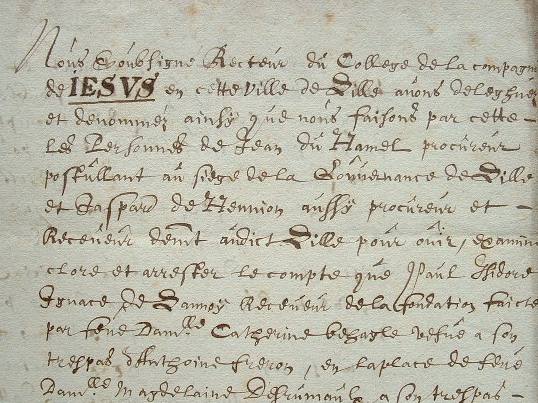 Nous Soubsigne Recteur du College de la compagni
de IESVS en cette ville de Lille avons deleghuez
et denommez ainsy que nous faisons par cette –
les Personnes de Jean du Hamel procureur
postullant au siege de la Gouvernance de Lille
et Gaspard de Hennion aussy procureur et –
Receveur demt audict Lille pour ouir, examine
clore et arrester le compte que Paul Isidore
Ignace de Lannoy Receveur de la fondation faicte
par feue Damlle Catherine behagle vefue a son
trespas d'Anthoine freron, en la place de feue
Damlle Magdelaine Desrumaulx a son trespas –